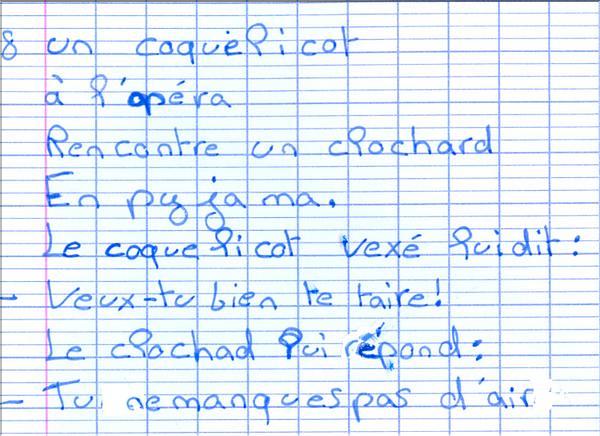 8 un coquèlicot
à l'opéra
Rencontre un clochard
En pyjama.
Le coquelicot vexé luidit :
- Veux-tu bien te taire!
Le clochad lui répond :
- Tu ne manques pas d'air